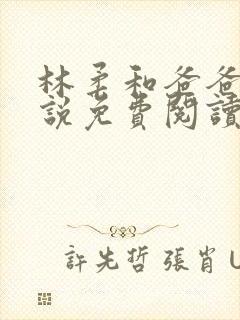 林柔和爸爸
説免費閱讀
許先哲 張肖 U